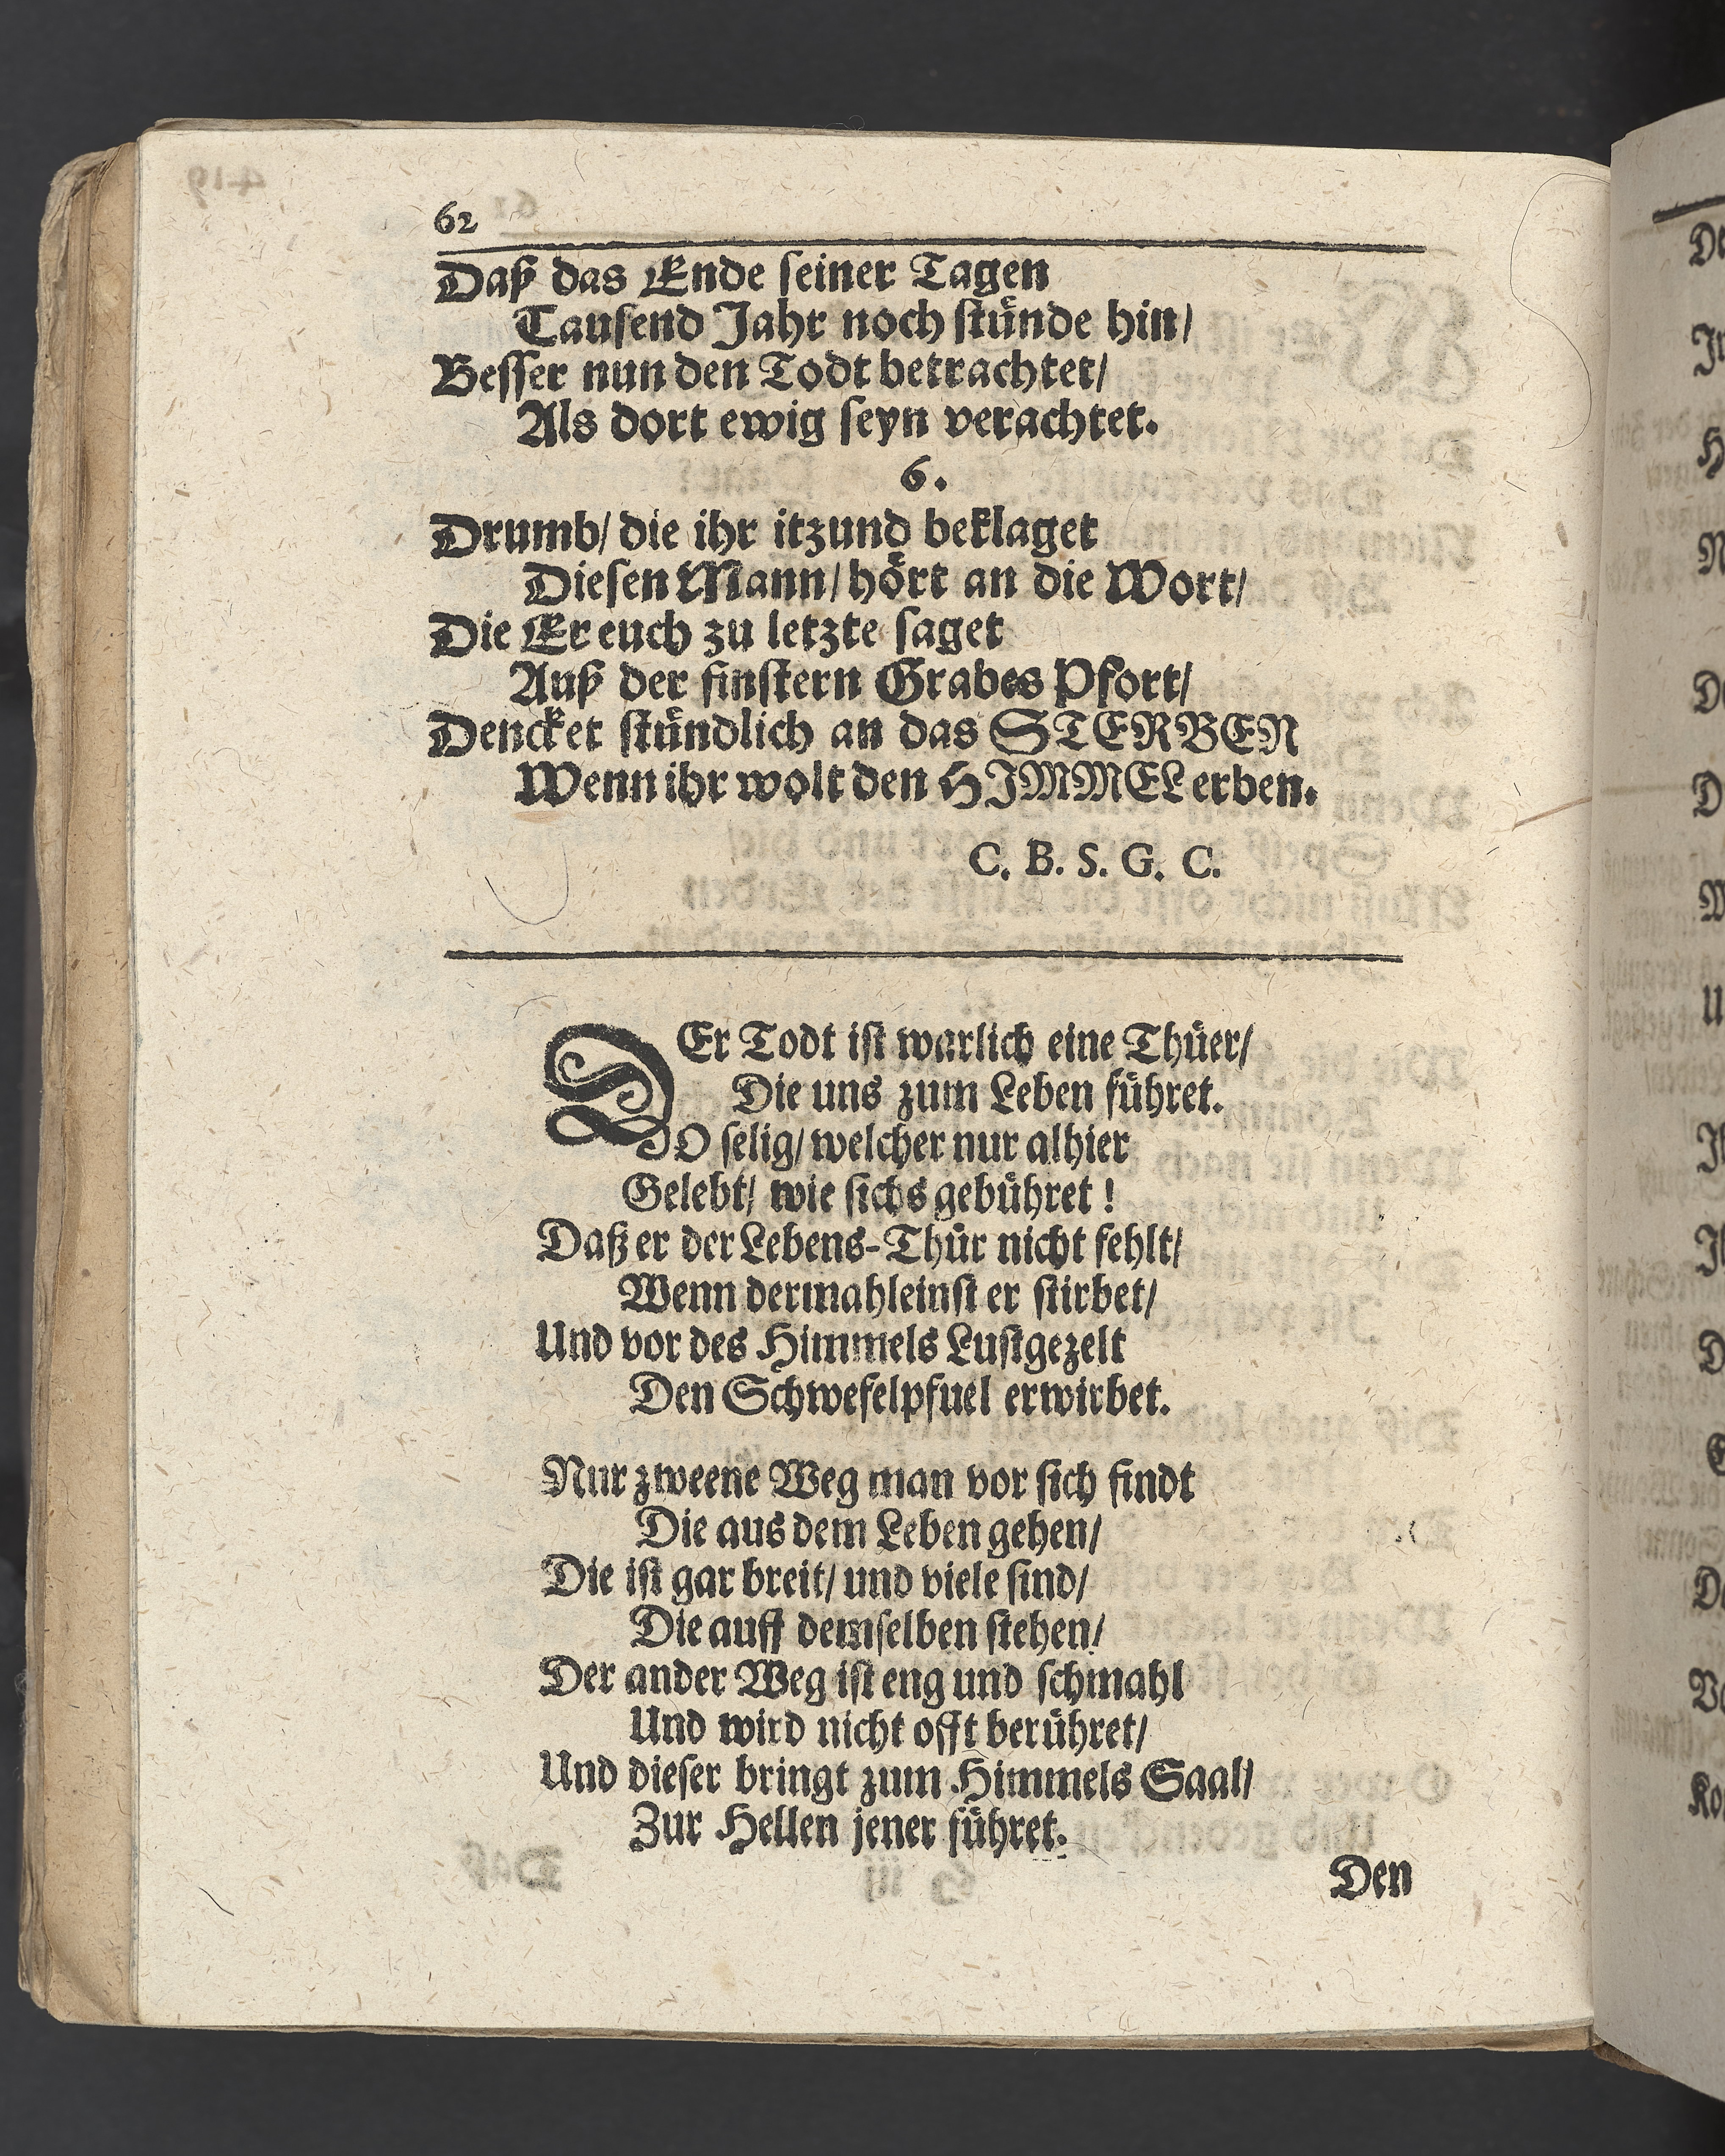 62
Daß das Ende seiner Tagen
Tausend Jahr noch stünde hin/
Besser nun den Todt betrachtet/
Als dort ewig seyn verachtet.
6.
Drumb/ die ihr itzund beklaget
Diesen Mann/ hört an die Wort/
Die Er euch zu letzte saget
Auß der finstern Grabes Pfort/
Dencket stündlich an das STERBEN
Wenn ihr wolt den HIMMEL erben.
C. B. S. G. C.
DEr Todt ist warlich eine Thüer/
Die uns zum Leben führet.
O selig/ welcher nur alhier
Gelebt/ wie sichs gebühret!
Daß er der Lebens-Thür nicht fehlt/
Wenn dermahleinst er stirbet/
Und vor des Himmels Lustgezelt
Den Schwefelpfuel erwirbet.
Nur zweene Weg man vor sich findt
Die aus dem Leben gehen/
Die ist gar breit/ und viele sind/
Die auff demselben stehen/
Der ander Weg ist eng und schmahl
Und wird nicht offt berühret/
Und dieser bringt zum Himmels Saal/
Zur Hellen jener führet.
Den